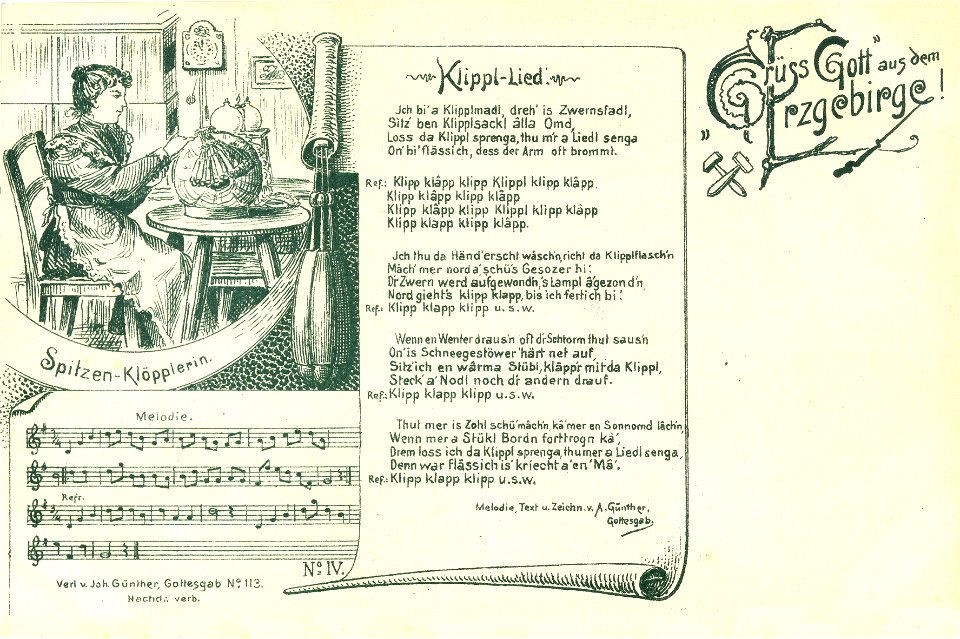 Klippl-Lied.
Jch bi' a Klipplmadl, dreh' is Zwernsfadl,
Sitz' ben Klipplsackl âlla Omd,
Loss da Klippl sprenga, thu m'r a' Liedl senga
On' bi' flässich, dess der Arm oft brommt.
Ref.: Klipp klâpp klipp Klippl klipp klâpp,
Klipp klâpp klipp klâpp
Klipp klâpp klipp Klippl klipp klâpp
Klipp klapp klipp klâpp.
Jch thu da Händ' erscht wâsch'n, richt da Klipplflasch'n
Mâch' mer nord a' schü's Gesozer hi:
D'r Zwern werd aufgewondn, 's Lampl â'gezond'n,
Nord gieht's klipp klapp, bis ich fertich bi!
Ref.: Klipp klapp klipp u. s. w.
Wenn en Wenter draus'n oft d'r Schtorm thut saus'n
On' is Schneegestöwer härt net auf,
Sitz' ich en wârma Stübl, klâpp'r mit da Klippl,
Steck' a' Nodl noch d'r andern drauf.
Ref.: Klipp klapp klipp u.s.w.
Thut mer is Zohl schü' mâch'n, kâ' mer en Sonnomd lâch'n,
Wenn mer a Stükl Bordn forttrogn kâ',
Drem loss ich da Klippl sprenga, thu mer a Liedl senga
Denn war flässich is' kriecht a' en' Mâ'.
Ref.: Klipp klapp klipp u.s.w.
Melodie, Text u. Zeichn. v. A. Günther,
Gottesgab.
Spitzen-Klöpplerin.
Melodie.
Refr.
No IV.
Verl v. Joh. Günther, Gottesgab No 113.
Nachdr. verb.
„Grüss Gott" aus dem
Erzgebirge!